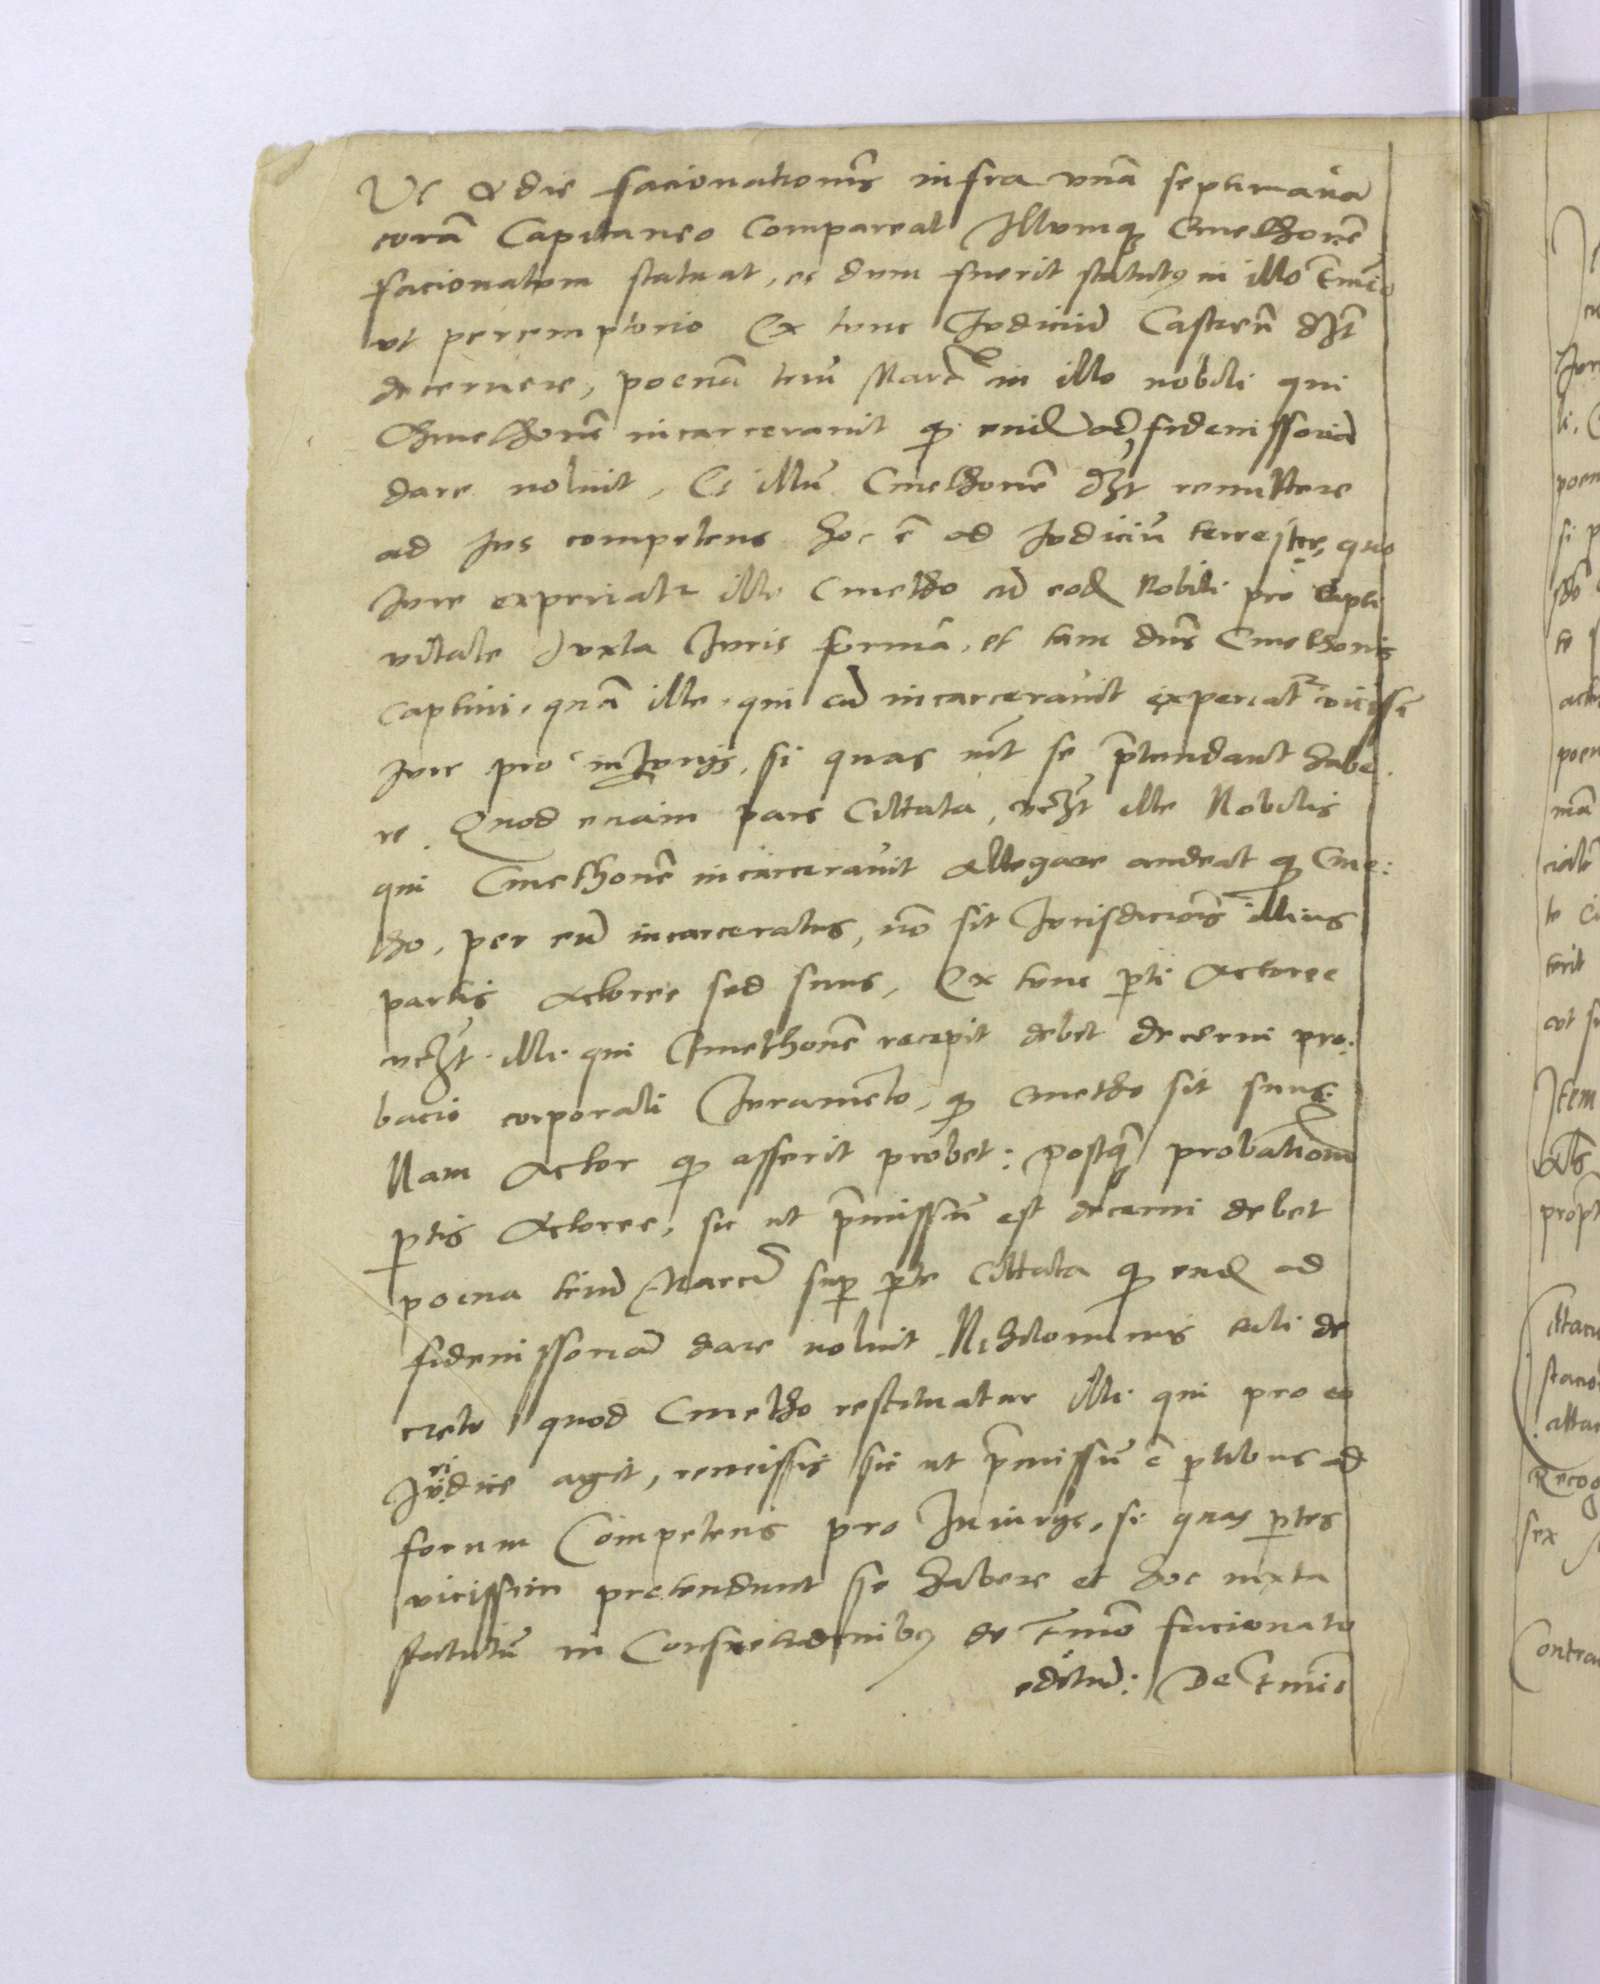 Vt a die facionationis infra vnã septimana
corã Capitaneo Compareat Illumq̃ Cmethonẽ
facionatum statuat, et dum fuerit statutus in illo t̃mio
vt peremptorio Ex tunc Iudiciũ Castreñ dz̃t
decernere, poenã triũ Marc̃ in illo nobili qui
Chmethonẽ incarceravit q̃ eũd ad fideiussoriã
dare noluit, Et illũ Cmethonẽ dz̃t remittere
ad Ius competens hoc ẽ ad Iudiciũ terrestre, quo
Iure experiatr ille Cmetho cũ eod Nobili pro Capti
vitate Iuxta Iuris formã, et tam dñs Cmethonis
captiui, quã ille, qui eũ incarceravit experiatr vicissĩ
Iure pro iniurijs, si quas int̃ se p̃tendant habe
re. Quod enaim pars Cittata, vcz̃t ille Nobilis
qui Cmethonẽ incarceravit allegare audeat q̃ Cme:
tho, per eũ incarceratus, nõ sit Iurisdicioñis illius
partis actoree sed suus, Ex tunc p̃ti Actoree
vcz̃t. illi. qui Cmethonẽ recepit debet decerni pro:
bacio corporali Iuramẽto, q̃ Cmetho sit suus:
Nam Actor q̃ asserit probet: postq̃ probationẽ
p̃tis Actoree, sic ut p̃missũ est decerni debet
poena triũ Marcã sup p̃te Cittata q̃ eũd ad
fideiussoriã dare noluit Nihilominus tali de
creto quod Cmetho restituatur illi qui pro eo
Iuridice agit, remissis sic ut p̃missũ ẽ p̃tibus ad
forum Competens pro Iniurijs, si quas p̃tes
vicissim pretendunt se habere et hoc iuxta
statutũ in Consuetudinibus de t̃mõ facionato
editũ: De t̃mis